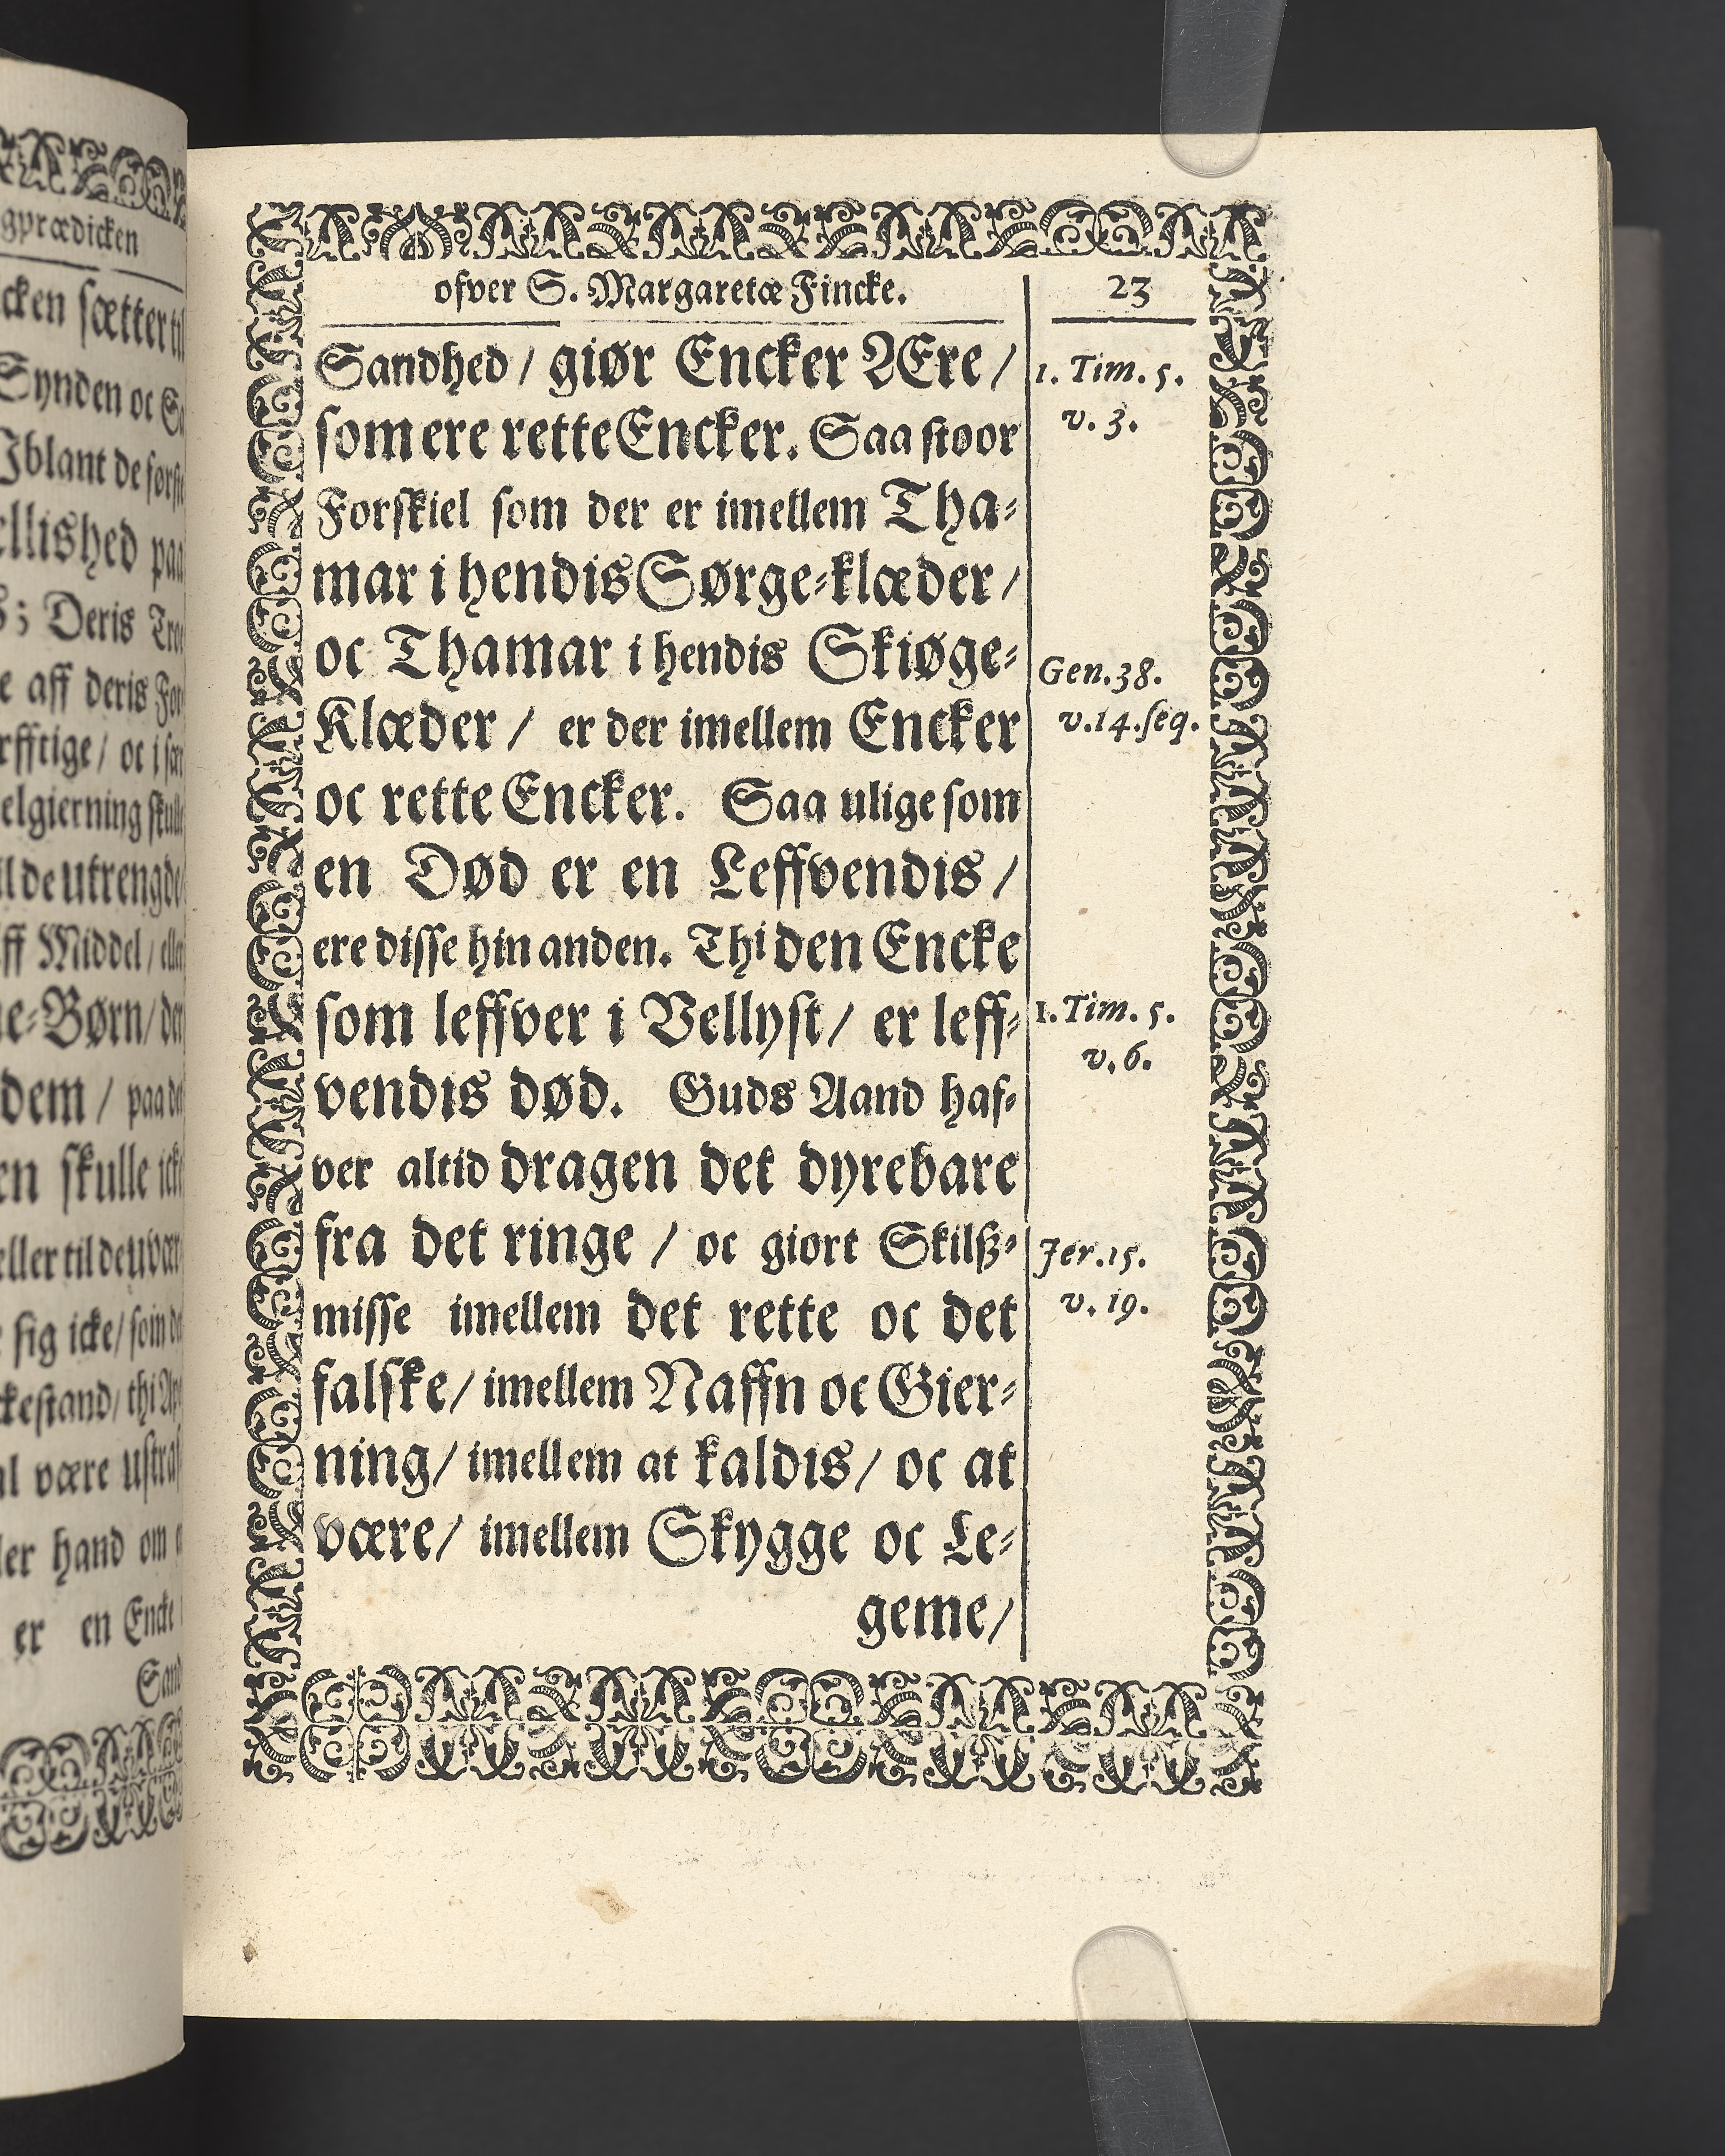 gprædicken
cken sætter
Synden oc
Iblant de
ellished
Deris
e aff deris
oc i
elgierning
de utrengde
ff Middel /
e-Børn /
dem /
rn skulle
eller til
sig icke /
ckestand / thi
al være
hand om
er en Encke
ofver S. Margaretæ Fincke. 23
Sandhed / giør Encker Ære /
som ere rette Encker. Saa stoor
Forskiel som der er imellem Tha-
mar i hendis Sørge-klæder /
oc Thamar i hendis Skiøge-
Klæder / er der imellem Encker
oc rette Encker. Saa ulige som
en Død er en Leffvendis /
ere disse hin anden. Thi den Encke
som leffver i Vellyst / er leff-
vendis død. Guds Aand haf-
ver altid dragen det dyrebare
fra det ringe / oc giort Skilß-
misse imellem det rette oc det
falske / imellem Naffn oc Gier-
ning / imellem at kaldis / oc at
være / imellem Skygge oc Le-
geme /
1. Tim. 5.
v. 3.
Gen. 38.
v. 14. seq.
1. Tim. 5.
v. 6.
Jer. 15.
v. 19.